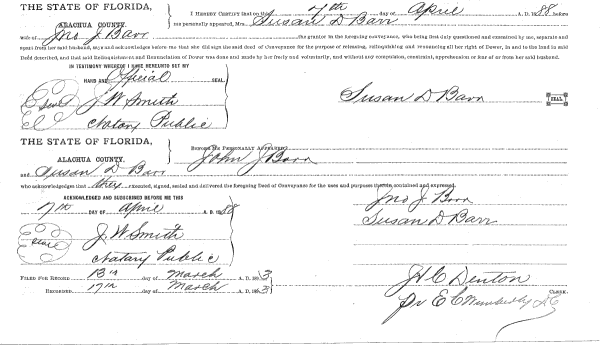 THE STATE OF FLORIDA,
ALACHUA COUNTY.
I HEREBY CERTIFY that on the 7th day of April A. D. 88 before
me personally appeared, Mrs. Susan D Barr
wife of Jno J Barr the grantor in the foregoing conveyance, who being first duly questioned and examined by me, separate and
apart from her said husband, says and acknowledges before me that she did sign the said deed of Conveyance for the purpose of releasing, relinquishing and renouncing all her right of Dower, in and to the land in said
Deed described, and that said Relinquishment and Renunciation of Dower was done and made by her freely and voluntarily, and without any compulsion, constraint, apprehension or fear of or from her said husband.
IN TESTIMONY WHEREOF I HAVE HEREUNTO SET MY
HAND AND Official SEAL
Seal J. W. Smith
Notary Public
Susan D Barr SEAL
THE STATE OF FLORIDA,
ALACHUA COUNTY.
BEFORE ME PERSONALLY APPEARED John J Barr
and Susan D Barr
who acknowledges that they executed, signed, sealed and delivered the foregoing Deed of Conveyance for the uses and purposes therein contained and expressed.
ACKNOWLEDGED AND SUBSCRIBED BEFORE ME THIS
7th DAY OF April A. D. 188
Jno J. Barr
Susan D Barr
Seal J. W. Smith
Notary Public
FILED FOR RECORD 13th day of March A. D. 189 3
RECORDED 17th day of March A. D. 189 3
H C Denton
CLERK.
Pr E C Wimberly DC